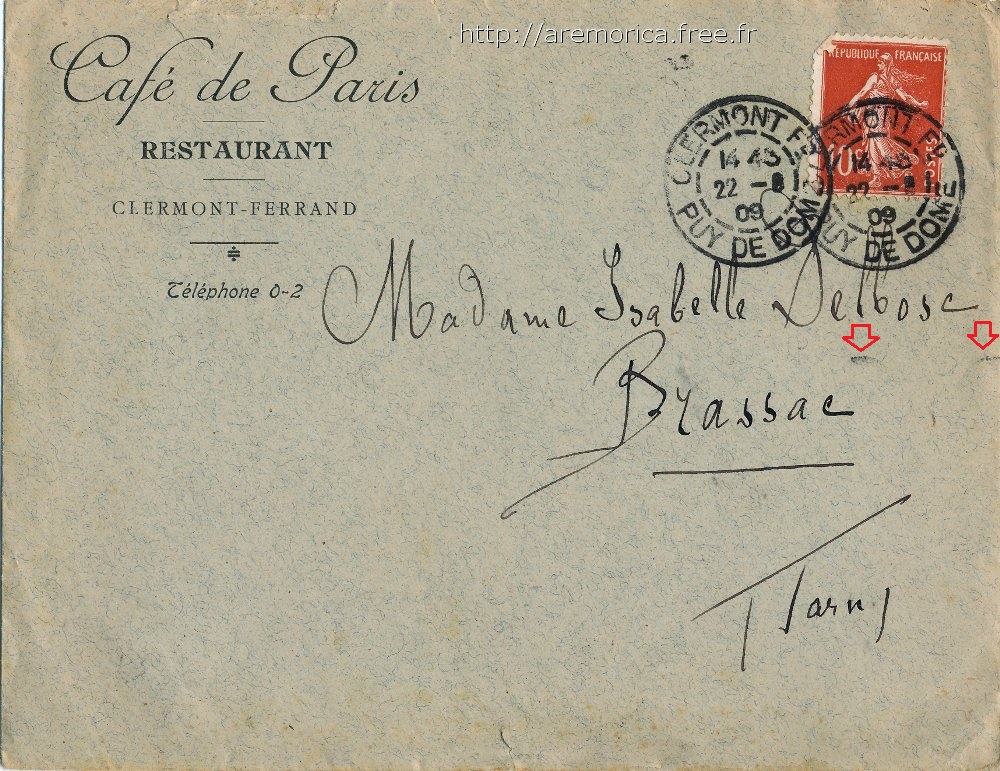 http://aremorica.free.fr
Café de Paris
RESTAURANT
CLERMONT-FERRAND
Téléphone 0-2
RÉPUBLIQUE FRANÇAISE
CLERMONT FD
14 45
22 -
09
PUY DE DOME
CLERMONT FD
14
22 -
09
PUY DE DOME
Madame Isabelle Delbosc
Brassac
Tarn